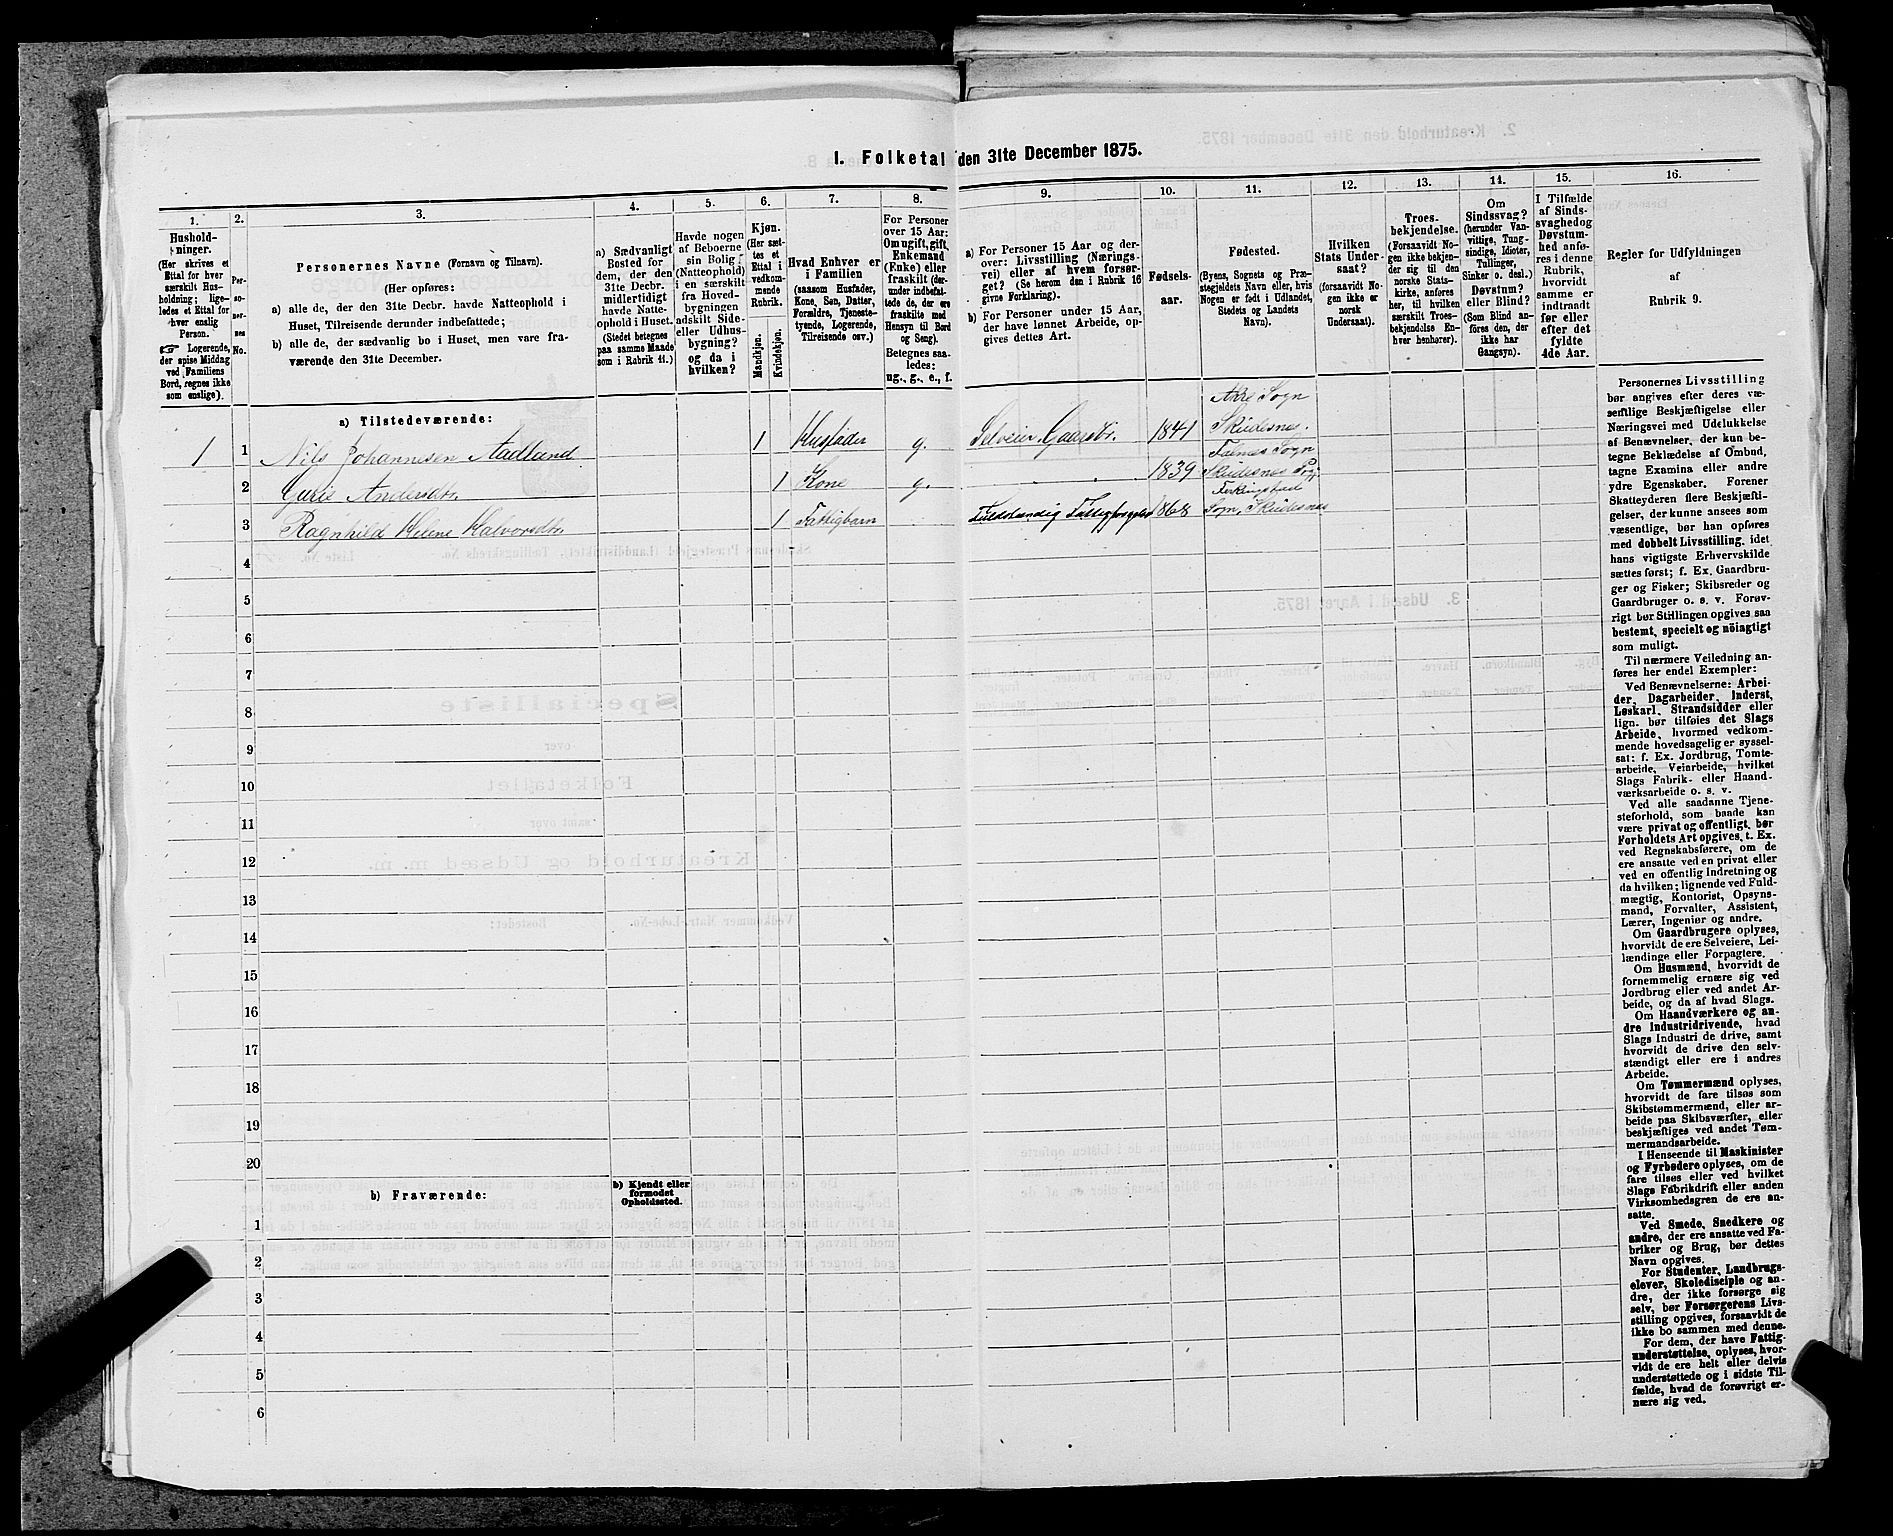 I. Folketal den 31te December 1875.
1. 2. 3. 4. 5. 6. 7. 8. 9. 10. 11. 12. 13. 14. 15. 16.
Hushold-
ninger.
(Her skrives et
Ettal for hver
særskilt Hus-
holdning; lige-
ledes et Ettal for
hver enslig
Person.
Logerende,
der spise Middag
ved Familiens
Bord, regnes ikke
som enslige).
Per-
so-
ner-
nes
No.
Personernes Navne (Fornavn og Tilnavn).
(Her opføres:
a) alle de, der den 31te Decbr. havde Natteophold i
Huset, Tilreisende derunder indbefattede;
b) alle de, der sædvanlig bo i Huset, men vare fra-
værende den 31te December.
a) Sædvanligt
Bosted for
dem, der den
31te Decbr.
midlertidigt
havde Natte-
ophold i Huset.
(Stedet betegnes
paa samme Maade
som i Rubrik 11.)
Havde nogen
af Beboerne
sin Bolig
(Natteophold)
i en særskilt
fra Hoved-
bygningen
adskilt Side-
eller Udhus-
bygning?
og da i
hvilken?
Kjøn.
(Her sæt-
tes et
Ettal i
vedkom-
mende
Rubrik.
Mandkjøn.
Kvindekjøn.
Hvad Enhver er
i Familien
(saasom Husfader,
Kone, Søn, Datter,
Forældre, Tjeneste-
tyende, Logerende,
Tilreisende osv.)
For Personer
over 15 Aar:
Om ugift, gift,
Enkemand
(Enke) eller
fraskilt (der-
under indbefat-
tede de, der ere
fraskilte med
Hensyn til Bord
og Seng).
Betegnes saa-
ledes:
ug., g., e., f.
a) For Personer 15 Aar og der-
over: Livsstilling (Nærings-
vei) eller af hvem forsør-
get? (Se herom den i Rubrik 16
givne Forklaring).
b) For Personer under 15 Aar,
der have lønnet Arbeide, op-
gives dettes Art.
Fødsels-
aar.
Fødested.
(Byens, Sognets og Præ-
stegjeldets Navn eller, hvis
Nogen er født i Udlandet,
Stedets og Landets
Navn).
Hvilken
Stats Under-
saat?
(forsaavidt No-
gen ikke er
norsk
Undersaat).
Troes-
bekjendelse.
(Forsaavidt No-
gen ikke bekjen-
der sig til den
norske Stats-
kirke, anføres
her, til hvilken
særskilt Troes-
bekjendelse En-
hver henhører).
Om
Sindssvag?
(herunder Van-
vittige, Tung-
sindige, Idioter,
Tullinger,
Sinker o. desl.)
Døvstum?
eller Blind?
(Som Blind an-
føres den, der
ikke har
Gangsyn).
I Tilfælde
af Sinds-
svaghed og
Døvstum-
hed anfø-
res i denne
Rubrik,
hvorvidt
samme er
indtraadt
før eller
efter det
fyldte
4de Aar.
Regler for Udfyldningen
af
Rubrik 9.
a) Tilstedeværende:
1 1 Nils Johannesen Aadland 1 Husfader g. Selveier, Gaardbr. 1841 Skudesnes.
2 Gurie Andersdtr. 1 Kone g. 1839 Falnes Sogn
Skudesnes Pgj
3 Ragnhild Helene Halvorsdtr. 1 Fattigbarn Fuldstændig 1868 Ferkingstad
Sogn, Skudesnes
4
5
6
7
8
9
10
11
12
13
14
15
16
17
18
19
20
b) Fraværende:
b) Kjendt eller
formodet
Opholdssted.
1
2
3
4
5
6
Personernes Livsstilling
bør angives efter deres væ-
sentlige Beskjæftigelse eller
Næringsvei med Udelukkelse
af Benævnelser, der kun be-
tegne Beklædelse af Ombud,
tagne Examina eller andre
ydre Egenskaber. Forener
Skatteyderen flere Beskjæfti-
gelser, der kunne ansees som
væsentlige, bør han opføres
med dobbelt Livsstilling, idet
hans vigtigste Erhvervskilde
sættes først; f. Ex. Gaardbru-
ger og Fisker; Skibsreder og
Gaardbruger o. s. v. Forøv-
rigt bør Stillingen opgives saa
bestemt, specielt og nöiagtigt
som muligt.
Til nærmere Veiledning an-
føres her endel Exempler:
Ved Benævnelserne: Arbei-
der, Dagarbeider, Inderst,
Løskarl, Strandsidder eller
lign. bør tilføies det Slags
Arbeide, hvormed vedkom-
mende hovedsagelig er syssel-
sat: f. Ex. Jordbrug, Tomte-
arbeide, Veiarbeide, hvilket
Slags Fabrik- eller Haand-
værksarbeide o. s. v.
Ved alle saadanne Tjene-
steforhold, som baade kan
være privat og offentligt, bør
Forholdets Art opgives, t. Ex.
ved Regnskabsførere, om de
ere ansatte ved en privat eller
ved en offentlig Indretning og
da hvilken; lignende ved Fuld-
mægtig, Kontorist, Opsyns-
mand, Forvalter, Assistent,
Lærer, Ingeniør og andre.
Om Gaardbrugere oplyses,
hvorvidt de ere Selveiere, Lei-
lændinge eller Forpagtere.
Om Husmænd, hvorvidt de
fornemmelig ernære sig ved
Jordbrug eller ved andet Ar-
beide, og da af hvad Slags.
Om Haandværkere og an-
dre Industridrivende, hvad
Slags Industri de drive, samt
hvorvidt de drive den selv-
stændigt eller ere i andres
Arbeide.
Om Tømmermænd oplyses,
hvorvidt de fare tilsøs som
Skibstømmermænd, eller ar-
beide paa Skibsværfter, eller
beskjæftiges ved andet Tøm-
mermandsarbeide.
I Henseende til Maskinister
og Fyrbødere oplyses, om de
fare tilsøs eller ved hvilket
Slags Fabrikdrift eller anden
Virksomhedsgren de ere an-
satte.
Ved Smede, Snedkere og
andre, der ere ansatte ved Fa-
briker og Brug, bør dettes
Navn opgives.
For Studenter, Landbrugs-
elever, Skoledisciple og an-
dre, der ikke forsørge sig
selv, bør Forsørgerens Livs-
stilling opgives, forsaavidt de
ikke bo sammen med denne.
For dem, der have Fattig-
understøttelse, oplyses, hvor-
vidt de ere helt eller delvis
understøttede og i sidste Til-
fælde, hvad de forøvrigt er-
nære sig ved.